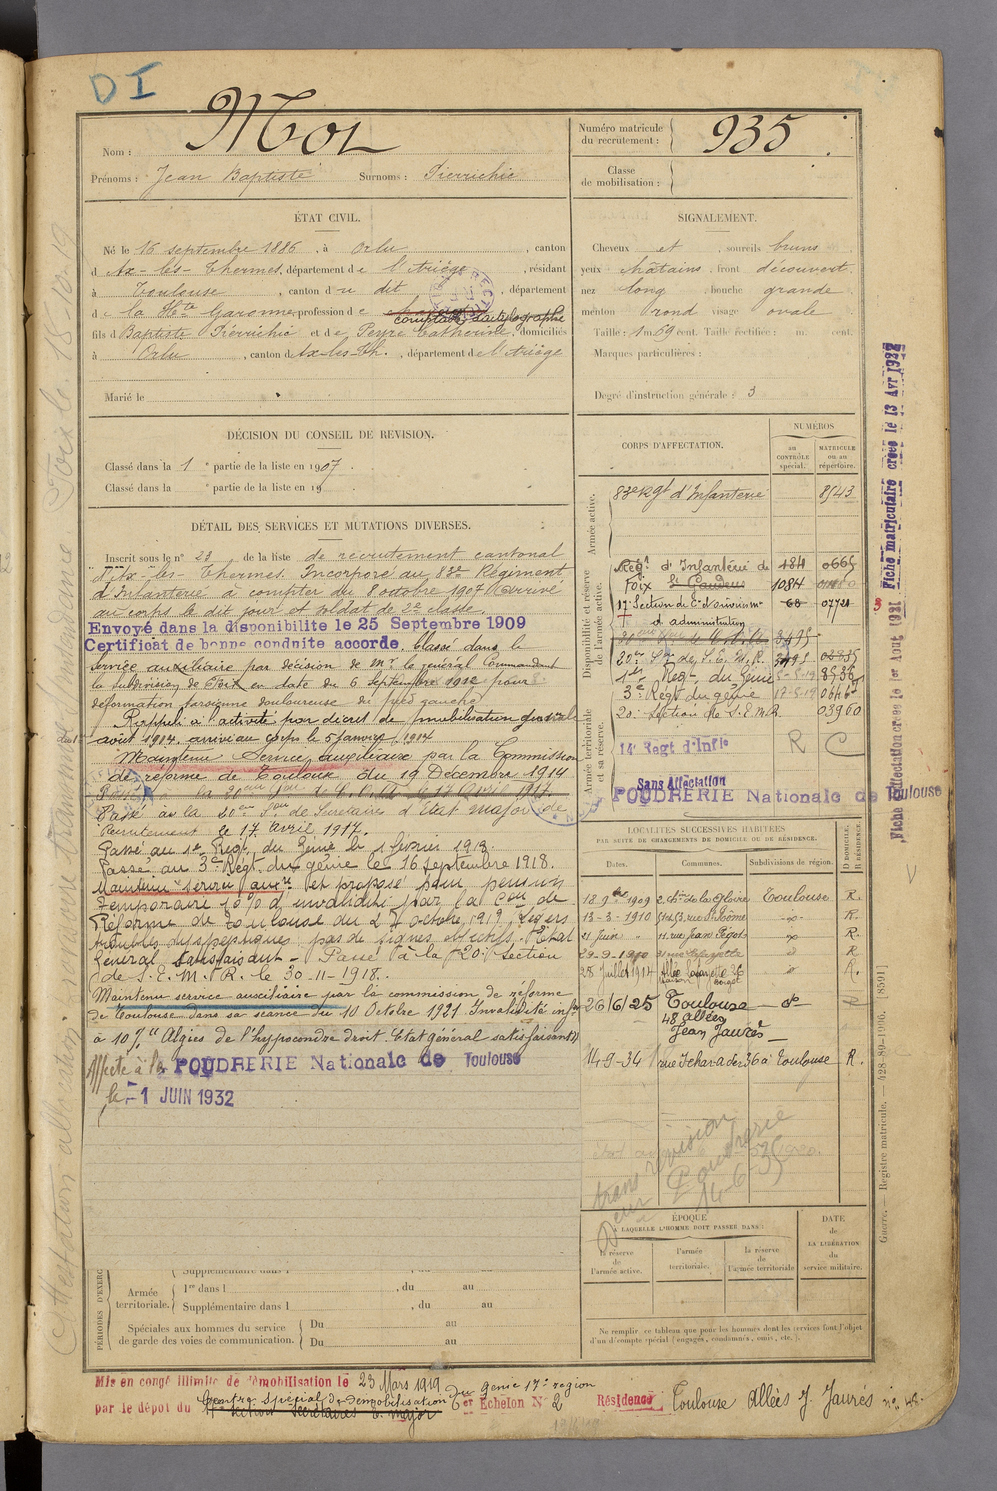 DI
Nom : Mol
Prénoms : Jean Baptiste Surnoms : Pierrichie
Numéro matricule du recrutement : 935
Classe de mobilisation :
ÉTAT CIVIL.
Né le 16 septembre 1886, à Orlu, canton
d'Ax-les-Thermes, département de l'Ariège, résidant
à Toulouse, canton du dit, département
de la Hte Garonne, profession de comptable dactylographe
fils de Baptiste Pierrichie et de Peyre Catherine, domiciliés
à Orlu, canton d'Ax-les-Th., département de l'Ariège
Marié le
SIGNALEMENT.
Cheveux et sourcils bruns
yeux châtains, front découvert
nez long, bouche grande
menton rond visage ovale
Taille : 1m 59 cent. Taille rectifiée : m. cent.
Marques particulières :
Degré d'instruction générale : 3
DÉCISION DU CONSEIL DE REVISION.
Classé dans la 1e partie de la liste en 1907.
Classé dans la e partie de la liste en 19
DÉTAIL DES SERVICES ET MUTATIONS DIVERSES.
Inscrit sous le n° 23 de la liste de recrutement cantonal
d'Ax-les-Thermes. Incorporé au 83e Régiment
d'Infanterie à compter du 8 octobre 1907. Arrivé
au corps le dit jour et soldat de 2e classe.
Envoyé dans la disponibilité le 25 Septembre 1909
Certificat de bonne conduite accordé. Classé dans le
service auxiliaire par décision de Mr le général Commandant
la subdivision de Foix en date du 6 septembre 1912 pour
déformation tarsienne douloureuse du pied gauche
Rappelé à l'activité par décret de mobilisation générale
du 1er août 1914. arrivé au corps le 5 janvier 1914
Maintenu Service auxiliaire par la Commission
de réforme de Toulouse du 19 Décembre 1914
Passé à la 20eme Son de Secrétaires d'Etat Major de
Recrutement le 17 avril 1917.
Passé au 1er Régt du Génie le 1 février 1918.
Passé au 3e Régt du génie le 16 septembre 1918.
Maintenu service auxre et proposé pour pension
temporaire 10% d'invalidité par la Con de
Réforme de Toulouse du 27 octobre 1919 Légers
troubles dyspeptiques pas de signes objectifs. Etat
Général satisfaisant - Passé à la 20e Section
de S.E.M.R. le 30-11-1918.
Maintenu service auxiliaire par la commission de réforme
de Toulouse dans sa séance du 10 Octobre 1921 Invalidité infre
à 10% "Algies de l'hypocondre droit. Etat général satisfaisant"
Affecté à la POUDRERIE Nationale de Toulouse
le -1 JUIN 1932
CORPS D'AFFECTATION.
NUMÉROS
au CONTRÔLE spécial.
MATRICULE ou au répertoire.
Armée active.
83e Rgt d'Infanterie 8543
Disponibilité et réserve de l'armée active.
Régt d'Infanterie de 184 0665
Foix St Gaudens 1084
17e Section de Cis d'ouvriers mres 68 07721
et administration
20e Son de S.E.M.R. 3495
1er Régt du Génie 8536
3e Régt du génie
20e Section de S.E.M.R 03960
Armée territoriale et sa réserve.
14 Régt d'Infie R C
Sans Affectation
POUDRERIE Nationale de Toulouse
LOCALITÉS SUCCESSIVES HABITÉES
PAR SUITE DE CHANGEMENTS DE DOMICILE OU DE RÉSIDENCE.
Dates. Communes. Subdivisions de région. D DOMICILE, R RÉSIDENCE.
18 9bre 1909 2 Ch. de la Gloire Toulouse R.
13-3-1910 R.
21 Juin 11 rue Jean Fegot R
29-9-1910 21 rue Lafayette R
28 juillet 1914 Allée Lafayette 36 R.
26/6/25 Toulouse 48 allées Jean Jaurès R
14-9-34 1 rue Ichara de 36a Toulouse R.
trans révision
Poudrerie
14-6-35
ÉPOQUE
À LAQUELLE L'HOMME DOIT PASSER DANS :
la réserve de l'armée active. l'armée territoriale. la réserve de l'armée territoriale
DATE de LA LIBÉRATION du service militaire.
Ne remplir ce tableau que pour les hommes dont les services font l'objet
d'un décompte spécial (engagés, condamnés, omis, etc.).
PÉRIODES D'EXERC
Supplémentaire dans l
Armée territoriale.
1re dans l , du au
Supplémentaire dans l , du au
Spéciales aux hommes du service
de garde des voies de communication.
Du au
Du au
Mis en congé illimité de démobilisation le 23 Mars 1919
par le dépôt du Centre Spécial de démobilisation du génie 17e région
et Echelon N° 2 Résidence Toulouse Allées J. Jaurès n° 48.
Fiche d'affectation créée le 1er Août 1931 Fiche matriculaire créée le 13 Avr 1932
Guerre. — Registre matricule. — 428-89-1906. [8591]